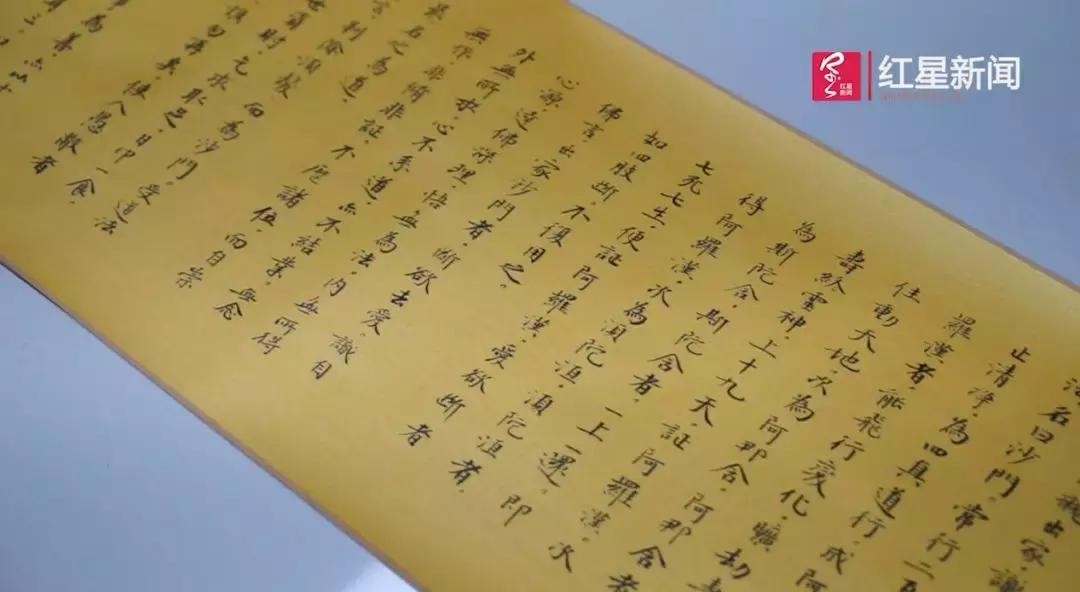 红星新闻
红星
新闻
親出家。識
法名曰沙門。常行二百
止清淨。為四真道行。成阿
羅漢者。能飛行變化。曠劫壽
住動天地。次為阿那舍。阿那舍者
壽終靈神。上十九天。証阿羅漢。次
為斯陀舍。斯陀舍者。一上一還。即
得阿羅漢。次為須陀洹。須陀洹者。
七死七生。便証阿羅漢。愛欲斷者
如四肢斷。不復用之。
佛言。出家沙門者。斷欲去愛。識自
心源。達佛深理。悟無為法。內無所得
外無所求。心不系道。亦不結業。無念
無作。非修非証。不歷諸位。而自崇
最名之為道。
言。剃除須髮。而為沙門。受道法
世資財。乞求取足。日中一食。
慎勿再矣。使人愚蔽者
為善。亦以十